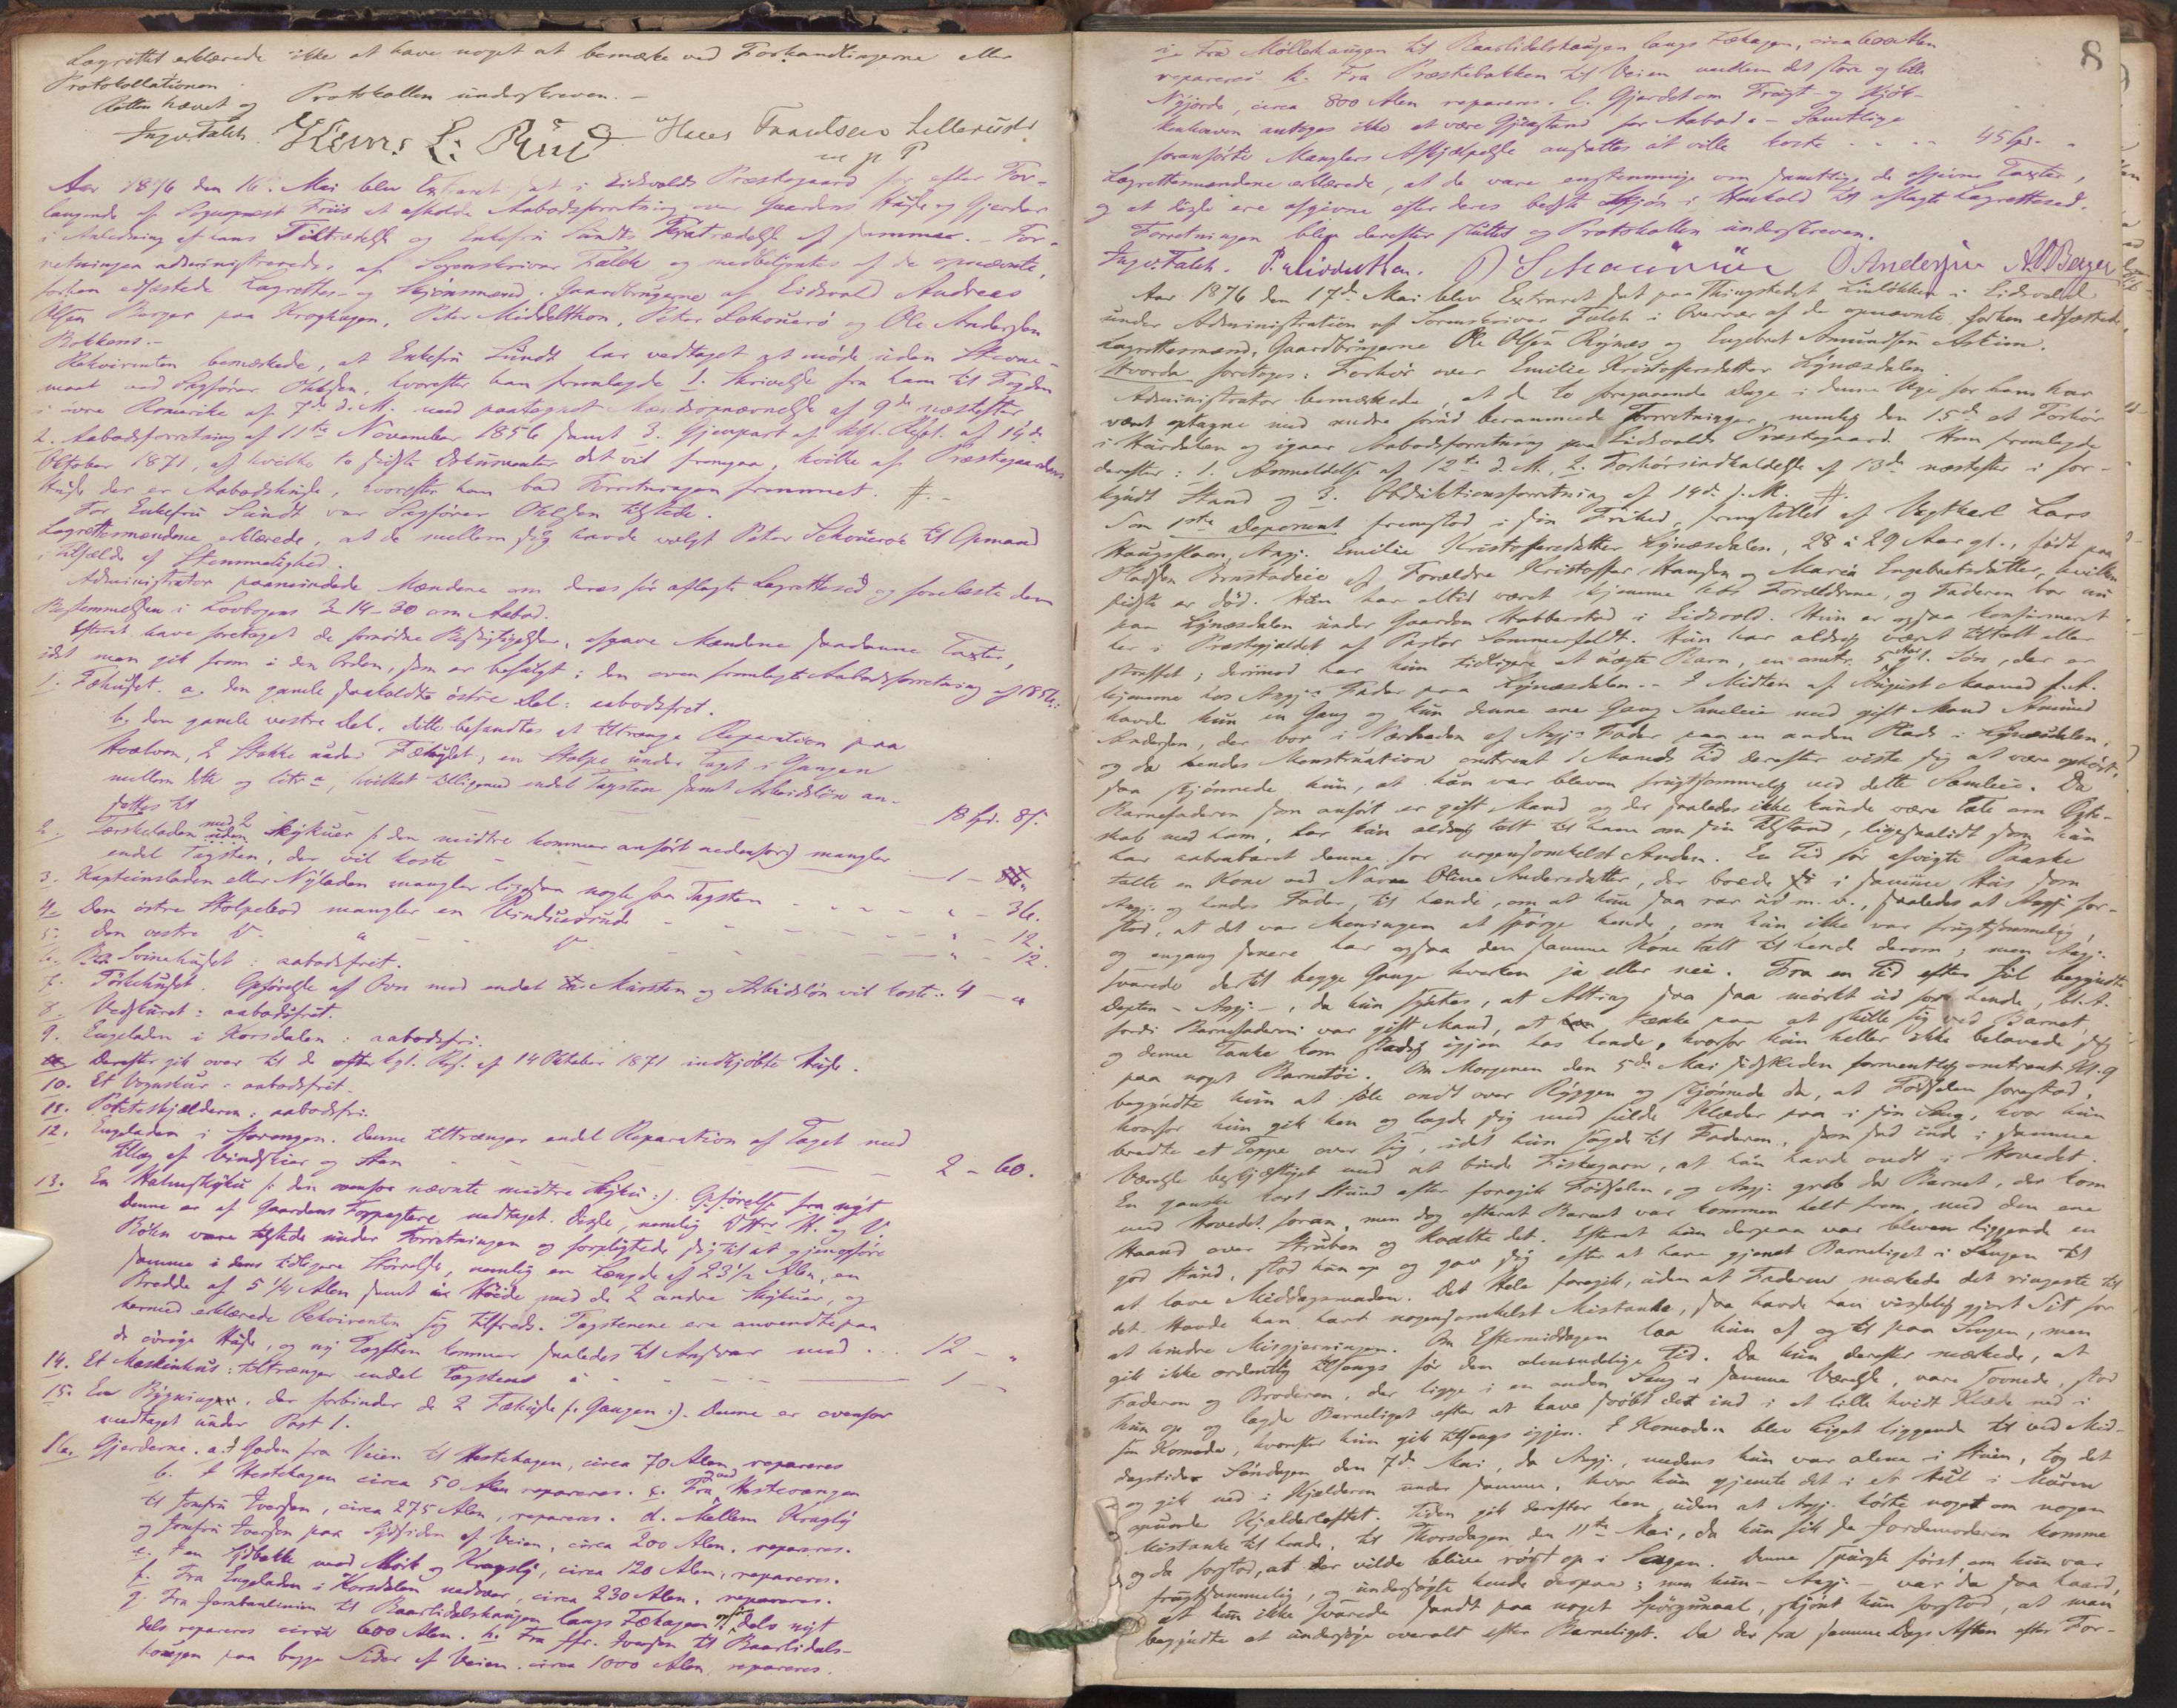 Lagrettet erklærede ikke at have noget at bemærke ved Forhandlingerne eller
Protokollationen.
Retten hævet og Protokollen underskreven. -
Ingv. Falch. Hans L: Ruud Hans Frantsen Lillerustd
m p P
Aar 1876 den 16de Mai blev Extraret sat i Eidsvolds Præstegaard for efter For-
langende af Sogneprest Friis at afholde Aabodsforretning over Gaardens Huse og Gjerder
i Anledning af hans Tiltrædelse og Enkefru Sundts Fratrædelse af samme. - For-
retningen administreredes af Sorenskriver Falch og medbetjentes af de opnævnte,
forhen edfæstede Lagrettes- og Skjönsmænd: Gaardbrugerne af Eidsvold Andreas
Olsen Berger paa Kroghagen, Peter Middelthon, Peter Schouerö og Ole Andersen
Bokkens. -
Rekvirenten bemærkede, at Enkefru Sundt har vedtaget at möde uden Stevne-
maal ved Sagförer Ottesen, hvorefter han fremlagde 1. Skrivelse fra ham til Fogden
i övre Romerike af 7de d. M. med paategnet Mændsopnævnelse af 9de næstefter
2. Aabodsforretning af 11te November 1856 samt 3. Gjenpart af kgl. Resl. af 14de
Oktober 1871, af hvilke to sidste Dokumenter det vil fremgaa, hvilke af Præstegaardens
Huse der er Aabodshuse, hvorefter han bad Forretningen fremmet. #. -
For Enkefru Sundt var Sagförer Ottesen tilstede.
Lagrettesmændene erklærede, at de mellem sig havde valgt Peter Schouerö til Opmand
i Tilfælde af Stemmelighed.
Administrator paamindede Mændene om deres för aflagte Lagrettesed og foreleste dem
Bestemmelsen i Lovbogens 2-14-30 om Aabod.
Efterat have foretaget de fornödne Besigtigelser, afgave Mændene saadanne Taxter,
idet man gik frem i den Orden, som er befulgt i den oven fremlagte Aabodsforretning af 1856:
1. Fæhuset. a. den gamle saakaldte östre Del: aabodsfrit.
b. den gamle vestre Del, dette befandtes at tiltrænge Reparation paa
Hvælven, 2 Stokke under Fæhuset, en Stolpe under Taget i Gangen
mellem dette og litr a, hvilket tilligemed endel Tagsten samt Arbeidslön an-
sattes til 18 Spd. 8 s.
2. Tærskeladen med 2 uden Skykuer (: den midtre kommer anfört nedenfor:) mangler
endel Tagsten, der vil koste - - - 1 -
3. Kapteinsladen eller Nyladen mangler ligesaa nogle faa Tagsten - - - " - 36.
4. Den östre Stolpebod mangler en Vinduesrude - - - " - 12.
5. Den vestre D. " - D. - - - " - 12.
6. Svinehuset: aabodsfrit.
7. Törkehuset. Opförelse af Ovn med endel Mursten og Arbeidslön vil koste: 4 - "
8. Vedskuret: aabodsfrit.
9. Engeladen i Korsdalen: aabodsfri.
Derefter gik over til de efter kgl. Res. af 14 Oktober 1871 indkjöbte Huse.
10. Et Vognskur: aabodsfrit.
11. Potetskjælderen: aabodsfri.
12. Engeladen i Storengen. Denne tiltrænger endel Reparation af Taget med
Tillæg af Vindskier og Sten - - - 2 - 60.
13. En Halmskyku (: den ovenfor nævnte midtre Skyku:). Opförelse fra nyt
Denne er af Gaardens Forpagtere nedtaget. Disse, nemlig DHrr H. og V.
Böhn vare tilstede under Forretningen og forpligtede sig til at gjenopföre
samme i dens tidligere Störrelse, nemlig en Længde af 23 1/2 Alen, en
Bredde af 5 1/4 Alen samt i Höide med de 2 andre Skykuer, og
hermed erklærede Rekvirenten sig tilfreds. Tagstenene ere anvendte paa
de övrige Huse, og ny Tagsten kommer saaledes til Ansvar med . . . 12 - "
14. Et Maskinhus: tiltrænger endel Tagstens à - - - 1 -
15. En Bygning, der forbinder de 2 Fæhuse (: Gangen:). Denne er ovenfor
medtaget under Post 1.
16. Gjerderne. a. I Gaden fra Veien til Hestehagen, circa 70 Alen repareres
b. I Hestehagen circa 50 Alen repareres. c. Fra Hestevangen
til Jomfru Iversen, circa 275 Alen, repareres. d. Mellem Kragly
og Jomfru Iversen paa Sydsiden af Veien, circa 200 Alen, repareres.
e. I en Sidbakke mod Mörk og Kragsly, circa 120 Alen, repareres.
f. Fra Engeladen i Korsdalen nedover, circa 230 Alen, repareres.
g. Fra Jernbanelinien til Baarlidalshaugen langs Fæhagen opföres dels nyt
dels repareres circa 600 Alen. h. Fra Jfr. Iversen til Baarlidals-
haugen paa begge Sider af Veien circa 1000 Alen, repareres.
8
i. Fra Möllehaugen til Baarlidalshaugen langs Fæhagen, circa 600 Alen
repareres. k. Fra Præstebakken til Veien mellem det store og lille
Nyjorde, circa 800 Alen repareres. l. Gjerdet om Frugt- og Kjök-
kenhaven antages ikke at være Gjenstand for Aabod. - Samtlige
foranförte Manglers Afhjælpelse ansattes at ville koste - - - 45 Spd. "
Lagrettesmændene erklærede, at de vare enstemmige om samtlige de afgivne Taxter,
og at disse ere afgivne efter deres bedste Skjön i Henhold til aflagte Lagrettesed.
Forretningen blev derefter sluttet og Protokollen underskreven.
Ingv. Falch. P. Middelthon. P Schouerüe O Andersen A O Berger
Aar 1876 den 17de Mai blev Extraret sat paa Thingstedet Lislökken i Eidsvold
under Administration af Sorenskriver Falch i Overvær af de opnævnte forhen edfæstede
Lagrettesmænd, Gaardbrugerne Ole Olsen Rynæs og Engebret Amundsen Askim.
Hvorda foretoges: Forhör over Emilie Kristoffersdatter Lynæsdalen.
Administrator bemærkede, at de to foregaaende Dage i denne Uge for ham har
været optagne med andre forud berammede Forretninger, nemlig den 15de et Forhör
i Hurdalen og igaar Aabodsforretning paa Eidsvolds Præstegaard. Han fremlagde
derefter: 1. Anmeldelse af 12te d. M., 2. Forhörsindkaldelse af 13de næstefter i for-
kyndt Stand og 3. Obduktionsforretning af 14de s. M. #.
Som 1ste Deponent fremstod i sin Frihed, fremstillet af Vægtkarl Lars
Haugsplasen, Angj. Emilie Kristoffersdatter Lynæsdalen, 28 à 29 Aar gl., födt paa
Pladsen Brustadeie af Forældre Kristoffer Hansen og Maria Engebretsdatter, hvilken
sidste er död. Hun har altid været hjemme hos Forældrene, og Faderen bor nu
paa Lynæsdalen under Gaarden Habberstad i Eidsvold. Hun er ogsaa konfirmeret
her i Præstegjældet af Pastor Sommerfeldt. Hun har aldrig været tiltalt eller
straffet; derimod har hun tidligere et uægte Barn, en omtr. 5 Aar gl. Sön, der er
hjemme hos Angj.s Fader paa Lynæsdalen. - I Midten af August Maaned f. A.
havde hun en Gang og kun denne ene Gang Samleie med gift Mand Amund
Andersen, der bor i Nærheden af Angj.s Fader paa en anden Plads i Lynæsdalen,
og da hendes Menstruation omtrent 1 Maaneds Tid derefter viste sig at være ophört,
saa skjönnede hun, at hun var bleven frugtsommelig ved dette Samleie. Da
Barnefaderen som anfört er gift Mand og der saaledes ikke kunde være Tale om Ægte-
skab med ham, har hun aldrig talt til ham om sin Tilstand, ligesaalidt som hun
har aabenbaret denne for nogensomhelst Anden. En Tid för afvigte Paaske
talte en Kone ved Navn Oline Andersdatter, der boede i samme Hus som
Angj. og hendes Fader, til hende, om at hun saa rar ud m. v., saaledes at Angj. for-
stod, at det var Meningen at spörge hende, om hun ikke var frugtsommelig,
og engang senere har ogsaa den samme Kone talt til hende derom; men Angj.
svarede dertil begge Gange hverken ja eller nei. Fra en Tid efter Jul begyndte
Depten - Angj. -, da hun syntes, at Alting saa saa mörkt ud for hende, bl. A.
fordi Barnefaderen var gift Mand, at tænke paa at skille sig ved Barnet,
og denne Tanke kom stadig igjen hos hende, hvorfor hun heller ikke belavede sig
paa noget Barnetöi. Om Morgenen den 5te Mai sidstleden formentlig omtrent Kl. 9
begyndte hun at föle ondt over Ryggen og skjönnede da, at Födselen forestod,
hvorfor hun gik hen og lagde sig med fulde Klæder paa i sin Seng, hvor hun
bredte et Teppe over sig, idet hun sagde til Faderen, som sad inde i samme
Værelse beskjæftiget med at binde Fiskegarn, at hun havde ondt i Hovedet.
En ganske kort Stund efter foregik Födselen, og Angj. greb da Barnet, der kom
med Hovedet foran, men dog efterat Barnet var kommen helt frem, med den ene
Haand over Struben og kvalte det. Efterat hun derpaa var bleven liggende en
god Stund, stod hun op og gav sig efter at have gjemt Barneliget i Sengen til
at lave Middagsmaden. Det Hele foregik, uden at Faderen mærkede det ringeste til
det. Havde han havt nogensomhelst Mistanke, saa havde han visselig gjort Sit for
at hindre Misgjerningen. Om Eftermiddagen laa hun af og til paa Sengen, men
gik ikke ordentlig tilsengs för den almindelige Tid. Da hun derefter mærkede, at
Faderen og Broderen, der ligge i en anden Seng i samme Værelse, vare sovnede, stod
hun op og lagde Barneliget efter at have svöbt det ind i et lille hvidt Klæde ned i
sin Komode, hvorefter hun gik tilsengs igjen. I Komoden blev Liget liggende til ved Mid-
dagstider Söndagen den 7de Mai, da Angj., medens hun var alene i Stuen, tog det
og gik ned i Kjælderen under samme, hvor hun gjemte det i et Hul i Muren
opunder Kjælderloftet. Tiden gik derefter hen, uden at Angj. hörte noget om nogen
Mistanke til hende, til Thorsdagen den 11te Mai, da hun fik se Jordemoderen komme
og da forstod, at der vilde blive rört op i Sagen. Denne spurgte först om hun var
frugtsommelig, og undersögte hende derpaa; men hun - Angj. - var da saa haard,
at hun ikke svarede sandt paa noget Spörgsmaal, skjönt hun forstod, at man
begyndte at undersöge overalt efter Barneliget. Da der fra samme Dags Aften efter For-